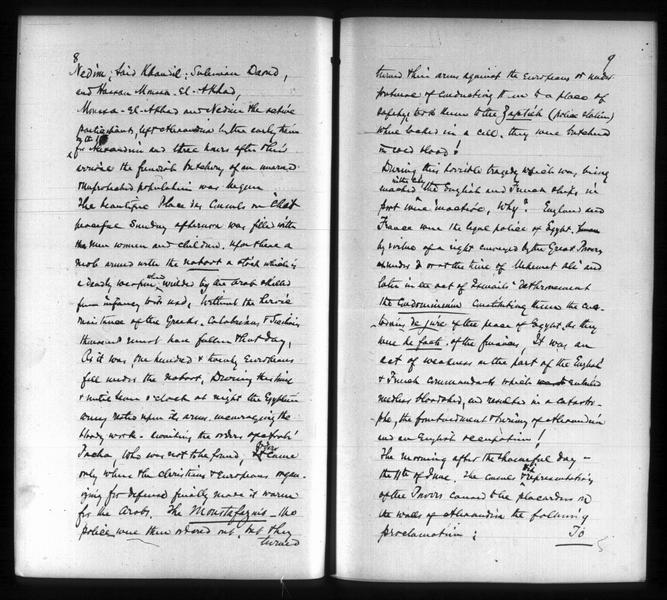 8
Nedim; Said Khandil; Suleiman Daoud,
and Hassan Moussa-El-Akkad,
Moussa-El-Akkad and Nedim the active
participants, left Alexandria by the early train
for Alexandria and three hours after their
arrival the fiendish butchery of an unarmed
unprotected population was begun.
The beautiful Place des Consuls on that
peaceful Sunday afternoon was filled with
men women and children. upon these a
mob armed with the naboot a stick which is
a deadly weapon when wielded by the Arab skilled
from infancy in its use. Without the heroic
resistance of the Greeks, Calabrians &
thousand must have fallen that day,
As it was, one hundred & twenty Europeans
fell under the naboot. During this time
& until seven o'clock at night the Egyptian
army rested upon its arms encouraging the
bloody work - awaiting the orders of Arabi
Pacha, who was not to be found, Order came
only when the Christians & Europeans organ-
izing for defence finally made it warm
for the Arabs. The Moustafezzis - the
police were then ordered out, but they
turned
9
turned their arms against the Europeans or under
pretence of conducting them to a place of
safety, took them to the Zaptieh (police station)
where locked in a cell, they were butchered
in cold blood!
During this horrible tragedy which was being
enacted in the city the English and French ships in
port were inactive, Why? England and
France were the legal police of Egypt.
by virtue of a right conveyed by the Great Powers
at the time of Mehemet Ali and
later in the act of Ismail's Dethronement
the Condominium Constituting them the cus-
todians de jure of the peace of Egypt as they
were de facto of the finances, It was an
act of weakness on the part of the English
& French commandants which entailed
needless bloodshed, and resulted in a catastro-
phe, the bombardment & burning of Alexandria
and an English occupation!
The morning after the shameful day -
the 11th of June. The consuls & Representatives
of the Powers caused to be placarded on
the walls of Alexandria the following
proclamation:
To